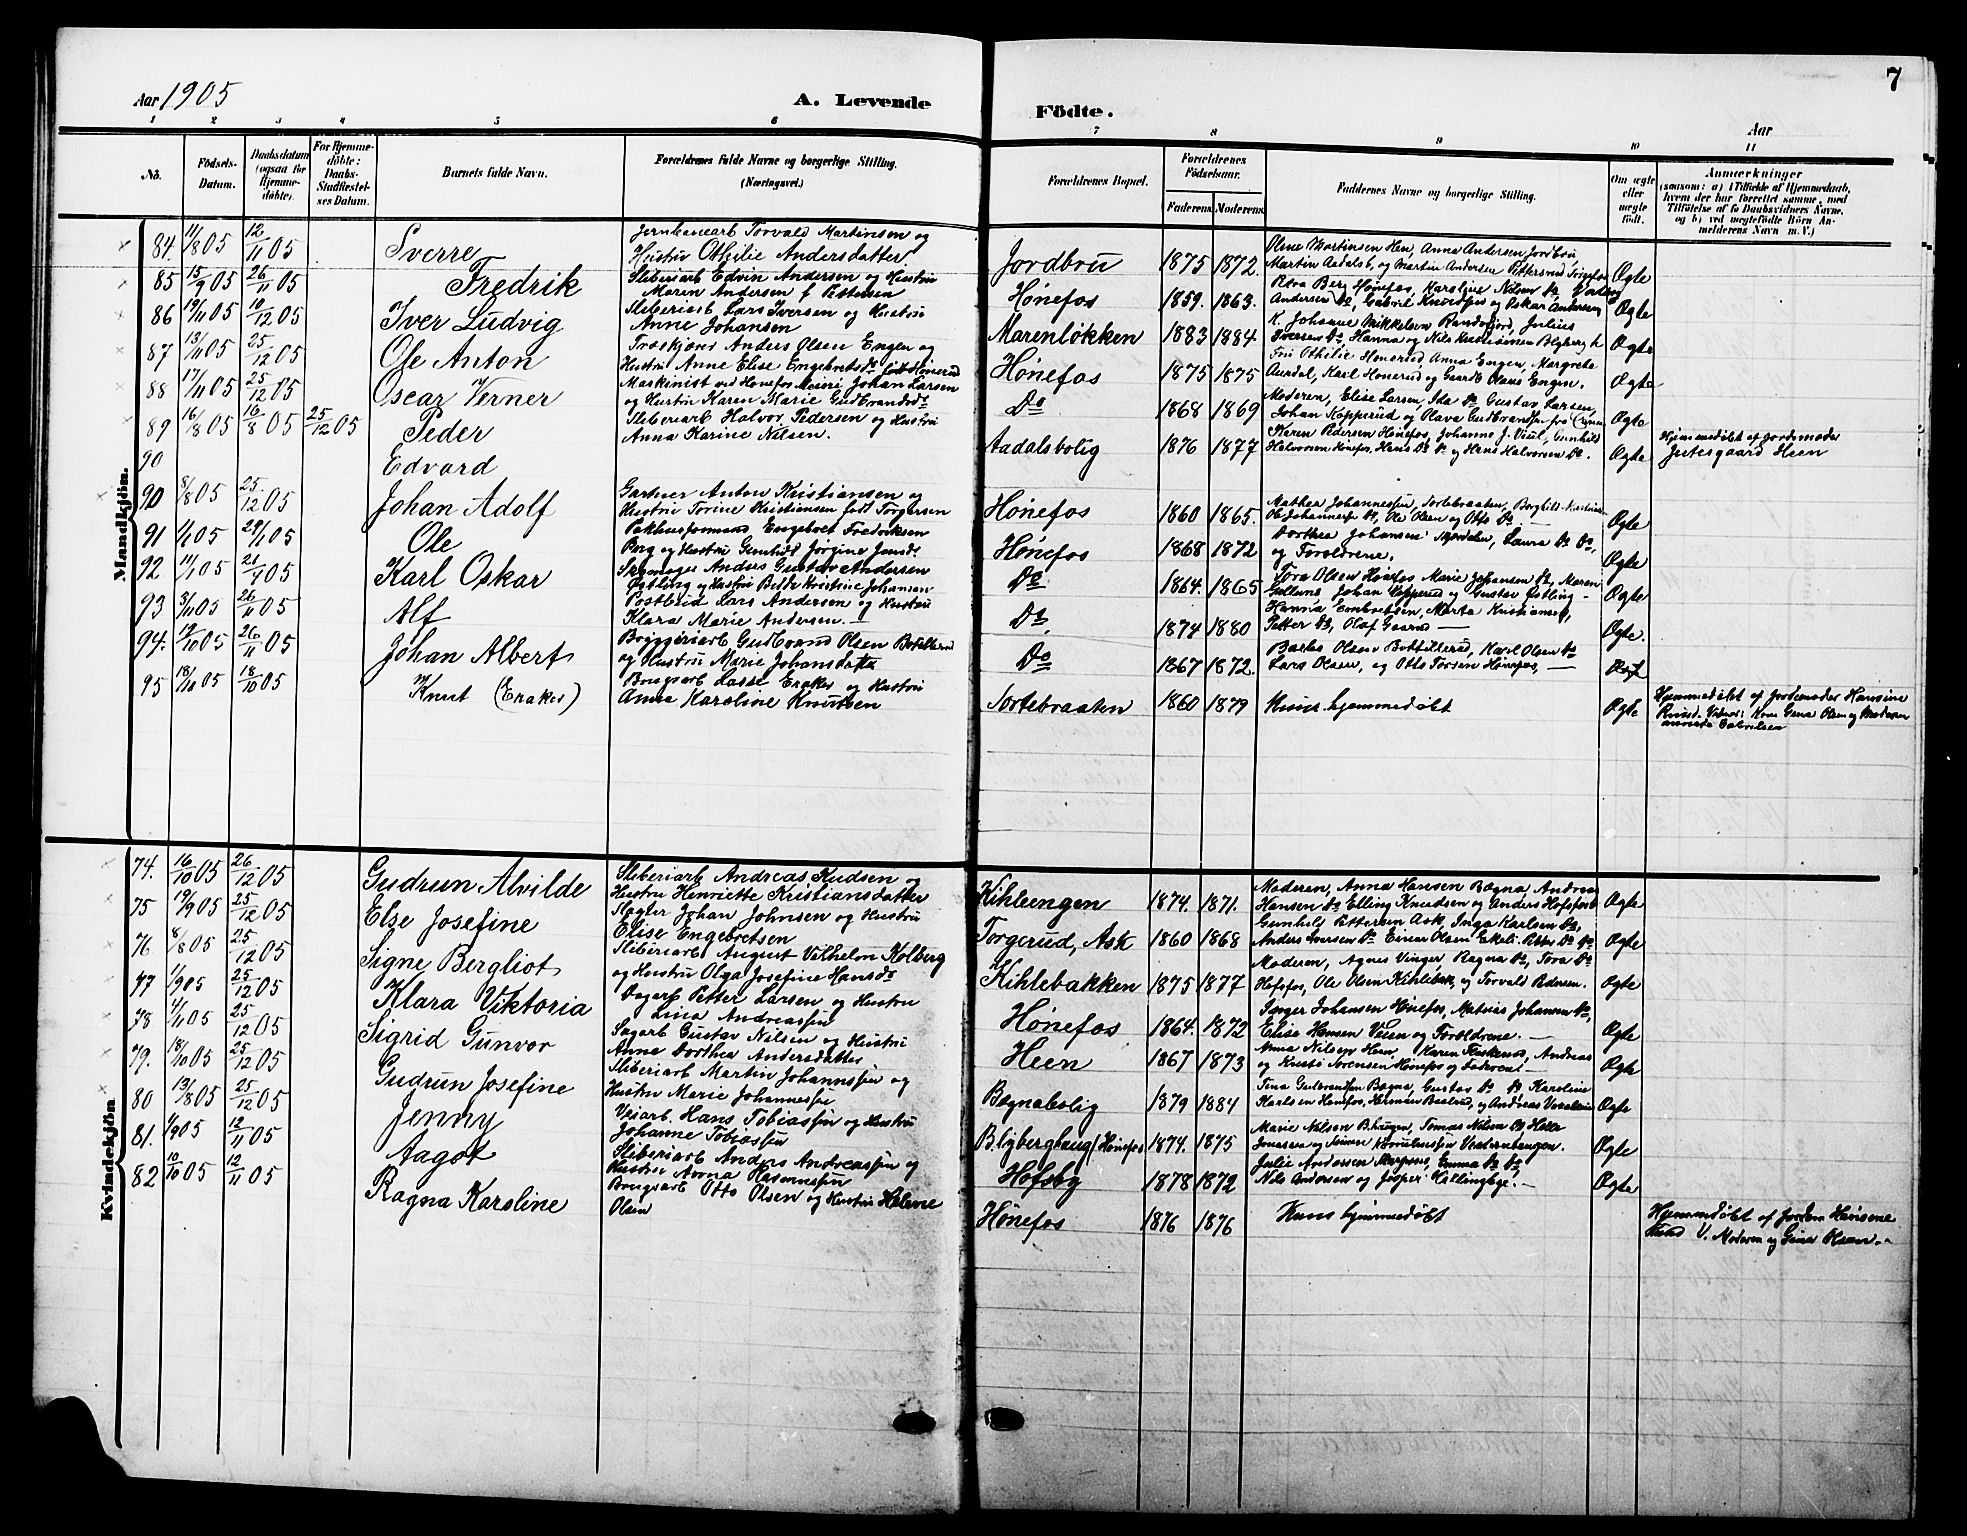 7
Aar 1905
A. Levende
Födte.
Aar
1 2 3 4 5 6 7 8 9 10 11
No.
Födsels-Datum.
Daabsdatum (ogsaa for Hjemmedöbte).
For Hjemmedöbte: Daabs-Stadfæstelses Datum.
Barnets fulde Navn.
Forældrenes fulde Navne og borgerlige Stilling. (Næringsvei.)
Forældrenes Bopæl.
Forældrenes Födselsaar.
Faderens. Moderens.
Faddernes Navne og borgerlige Stilling.
Om ægte eller uægte födt.
Anmærkninger
(saasom: a) i Tilfælde af Hjemmedaab, hvem der har forrettet samme, med Tilföielse af to Daabsvidners Navne, og b) ved uægtefödte Börn Anmelderens Navn m. V.)
Mandkjön.
84. 11/8 05 12/11 05 Sverre Jernbanearb Torvald Martinsen og
Hustru Othilie Andersdatter. Jordbru 1875 1872 Oline Martinsen Hen, Anna Andersen Jordbru
Martin Aadalsb, og Martin Andersen Ægte
85 15/9 05 26/11 05 Fredrik Sliberiarb Edvin Andersen og Hustru
Maren Andersen f Pettersen Hønefos 1859. 1863. Petra Berg Hønefos, Karoline Nilsen Do
Andersen Do, Gabriel og Oskar Andersen Ægte
86 19/11 05 10/12 05 Iver Ludvig Sliberiarb Lars Iversen og Hustru
Anne Johansen Marenløkken 1883 1884 K. Johanne Mikkelsen Randsfjord, Julius
Iversen Do, Hanna og Nils Kristiansen Ægte
87 13/11 05 25/12 05 Ole Anton Træskjærer Anders Olsen Engen og
Hustru Anne Elise Engebretsdr født Honerud Hønefos 1875 1875 Fru Othilie Honerud, Anna Engen, Margrethe
Aurdal, Karl Honerud og Gaardb Olaus Engen. Ægte
88 17/11 05 25/12 05 Oscar Verner Maskinist ved Hønefos Meieri Johan Larsen
og Hustru Karen Marie Gudbrandsdr Do 1868 1869 Moderen, Elise Larsen, Ida Do Gustav Larsen,
Johan Kopperud og Olava Gudbrandsen Ægte
89 16/8 05 16/8 05 25/12 05 Peder Sliberiarb Halvor Pedersen og Hustru
Anna Karine Nilsen. Aadalsbolig 1876 1877 Karen Pedersen Hønefos, Johanne J. Viul, Gunhild
Halvorsen Hønefos, Hans Do Do og Hans Halvorsen Do. Ægte Hjemmedøbt af Jordemoder
Jutesgaard Heen
90 Edvard
90 8/8 05 25/12 05 Johan Adolf Gartner Anton Kristiansen og
Hustru Torine Kristiansen født Torgersen Hønefos 1860 1865. Mathea Johannessen, Tortebraaten, Borghild
Ole Johannessen Do, Ole Olsen og Otto Do. Ægte
91 1/1 05 29/1 05 Ole Pakhusformand Engebret Fredriksen
Berg og Hustru Gunhild Jørgine Jonsdr Hønefos 1868 1872 Dorthea Johansen Mordalen, Laura Do Do,
og Foroldrene. Ægte
92 11/1 05 21/4 05 Karl Oskar Skomager Anders Gustav Andersen
Østling og Hustru Kristine Johansen Do 1864. 1865 Tora Olsen Hønefos, Marie Johansen Do, Maren
Johan Kopperud og Gustav Østling – Ægte
93 3/11 05 26/11 05 Alf Postbud Lars Andersen og Hustru
Klara Marie Andersen. — Do 1874 1880 Hanna Embretsen, Marta Kristiansen,
Petter Do, Olaf Gaarud — Ægte.
94. 19/10 05 26/11 05 Johan Albert Bryggeriarb Gudbrand Olsen
og Hustru Marie Johansdatter Do 1867 1872. Olsen Bottillerud, Karl Olsen Do
Lara Olsen, og Otto Torsen Hønefos, — Ægt
95 18/10 05 18/10 05 Knut (Eraker) Brugsarb Lasse Eraker og Hustru
Anna Karoline Knutsen Tortebraaten 1860 1879 Kun hjemmedøbt Ægte Hjemmedøbt af Jordemoder Hansine
Ruud. Vidner: Kone Gina Olsen og Moderen
Kvindekjön
74. 16/10 05 26/12 05 Gudrun Alvilde Sliberiarb Andreas Kudsen og
Hustru Henriette Kristiansdatter Kihleengen 1874. 1871. Moderen, Anna Hansen Bægna, Andreas
Hansen Do Elling Knudsen og Anders Hofsfos Ægte
75 19/9 05 25/12 05 Else Josefine Slagter Johan Johnsen og Hustru
Elise Engebretsen Torgerud, Ask 1860 1868 Gunhild Pettersen Ask, Inga Karlsen Do,
Anders Iversen Do Einar Olsen Ekeli. Petter Do Do Ægte
76 8/8 05 25/12 05 Signe Bergliot Sliberiarb August Vilhelm Kolberg
og Hustru Olga Josefine Hansdr Kihlebakken 1875 1877 Moderen, Agnes Vinger, Ragna Do, Tora Do
Hofsfos, Ole Olsen Kihlebak, og Torvald Pedersen. Ægte
77 1/1905 25/12 05 Klara Viktoria Dagarb Petter Larsen og Hustru
Lina Andreassen Hønefos 1864. 1872 Inger Johansen Hønefos, Matias Johansen Do,
Elise Hansen Veien og Foroldrene. — Ægte
78 4/11 05 25/12 05 Sigrid Gunvor Sagarb Gustav Nilsen og Hustru
Anne Dorthea Andersdatter Heen 1867 1873 Anna Nilsen Heen, Karen, Andreas
og Knut Sorensen Hønefos og Faderen Ægte
79. 18/10 05 25/12 05 Gudrun Josefine Sliberiarb Martin Johannssen og
Hustru Marie Johannesse Bægnabolig 1879 1884 Tina Gulbrandsen Bægna, Gustav Do Do Karoline
Karlsen Hønefos, Herman og Andreas Ægte
80 13/8 05 25/12 05 Jenny Veiarb. Hans Tobiassen og Hustru
Johanne Tobiassen Blybergshaug/Hønefos 1874. 1875 Marie Nilsen, Tomas Nilsen Do Helle
Vesternbangen. Ægte
81. 1/9 05 12/11 05 Aagot Sliberiarb Anders Andreassen og
Hustru Anna Rasmussen Hofsby 1878 1872 Julie Andersen, Emma Do Do,
Nils Andersen og Jesper. — Ægte
82 10/10 05 12/11 05 Ragna Karoline Brugsarb Otto Olsen og Hustru Helene
Olsen Hønefos 1876 1876 Kuns hjemmedøbt Hjemmedøbt af Jordem Hansine
Ruud V. Moderen og Gina Olsen.-